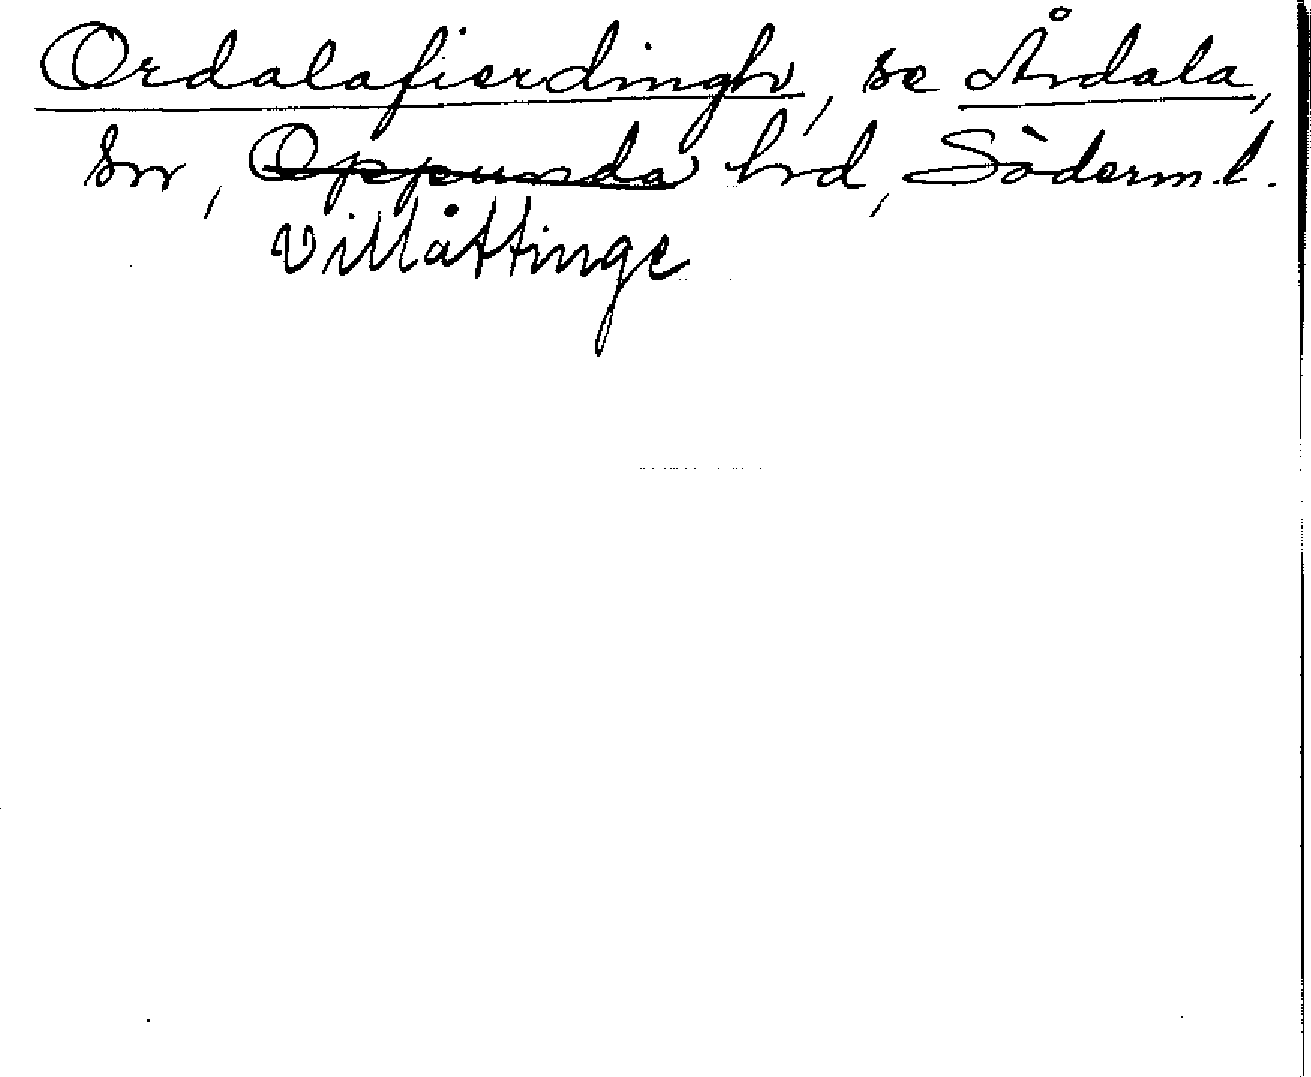 Ordalafierdingh, se Årdala,
sn, Oppunda hrd, Söderm.l.
Villåttinge